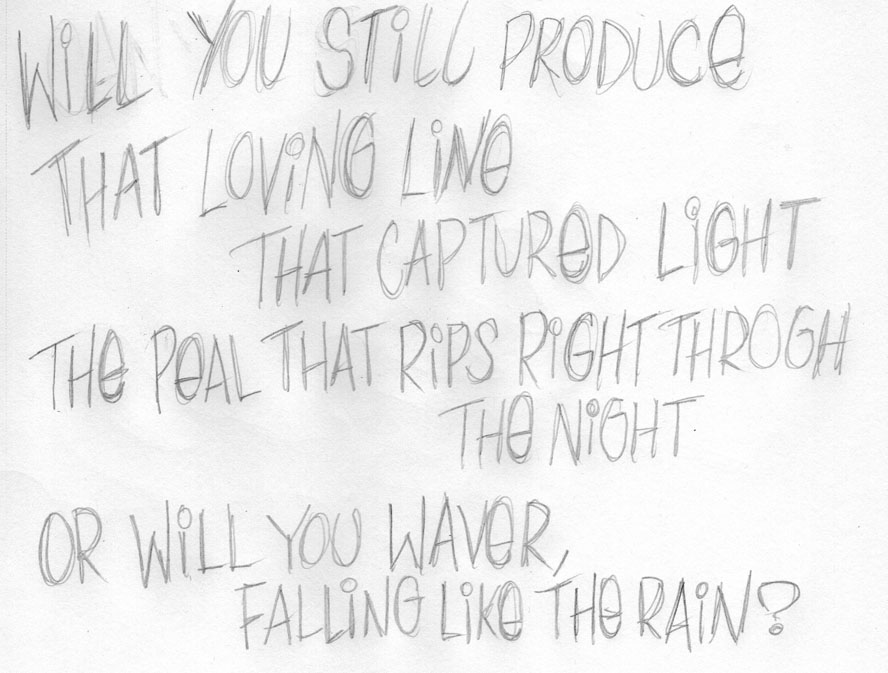 WiLL YOU STiLL PRODUCE
THAT LOViNG LiNE
THAT CAPTURED LiGHT
THE PEAL THAT RiPS RiGHT THROGH
THE NiGHT
OR WiLL YOU WAVER,
FALLiNG LiKE THE RAiN?